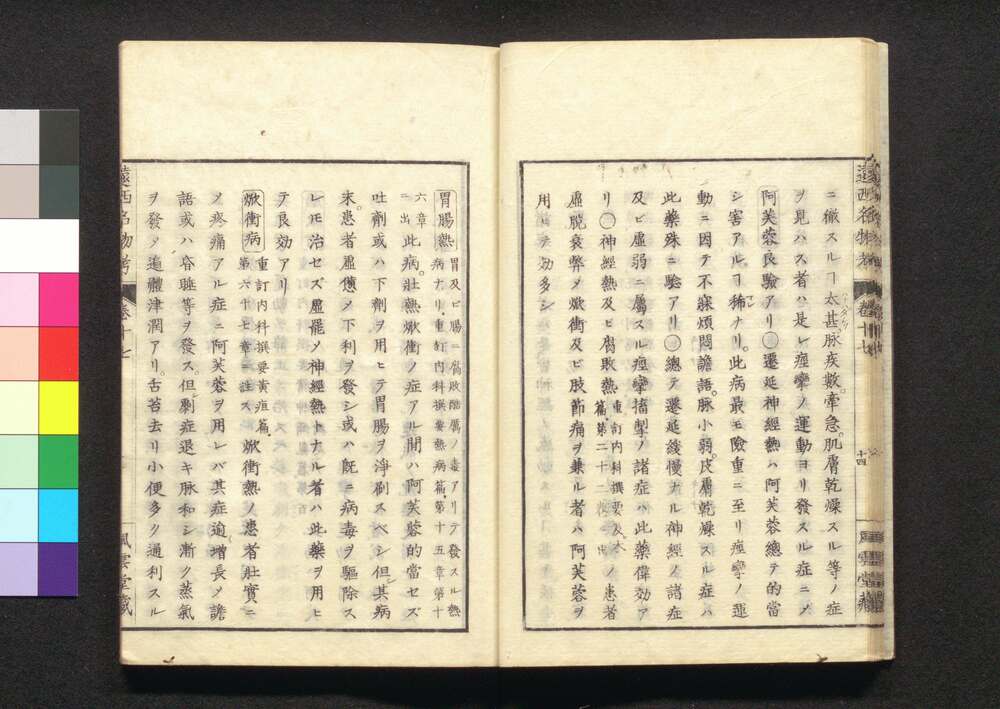 ニ徹スルヿ太甚。脈疾數。牽急。肌膚乾燥スル等ノ症
ヲ見ハス者ハ是レ痙攣ノ運動ヨリ發スル症ニ〆
阿芙蓉良驗アリ○遷延神經熱ハ阿芙蓉總テ的當
シ害アルヿ稀ナリ。此病最モ險重ニ至リ痙攣ノ運
動ニ因テ不寐煩悶譫語。脈小弱。皮膚乾燥スル症ハ
此藥殊ニ驗アリ○總テ遷延緩慢ナル神經ノ諸症
及ビ虛弱ニ屬スル痙攣搐掣ノ諸症ハ此藥偉効ア
リ○神經熱及ビ腐敗熱 重訂内科撰要 篇第二十二 出 ノ患者
虛脱衰弊〆焮衝及ビ肢節痛ヲ兼ル者ハ阿芙蓉ヲ
用ヒテ効多シ
遠西名物考
卷十七
十四
風雲堂藏
胃腸熱 胃及ビ腸ニ腐敗酷厲ノ毒アリテ發スル熱
病ナリ・重訂内科撰要熱病篇第十五章第十
六章
ニ出 此病。壯熱焮衝ノ症アル間ハ阿芙蓉的當セズ
吐劑或ハ下劑ヲ用ヒテ胃腸ヲ淨刷スベシ但其病
末。患者虛憊〆下利ヲ發シ或ハ既ニ病毒ヲ驅除ス
レモ治セズ虛罷〆神經熱トナル者ハ此藥ヲ用ヒ
テ良効アリ
焮衝病 重訂内科撰要黄疸篇
第六十七章ニ註ス 焮衝熱ノ患者壯實ニ
〆疼痛アル症ニ阿芙蓉ヲ用レバ其症逾增長〆譫
語或ハ昏睡等ヲ發ス。但劇症退キ脈和シ漸ク蒸氣
ヲ發〆遍體津潤アリ。舌苔去リ小便多ク通利スル
遠西名物考
卷十七
風雲堂藏